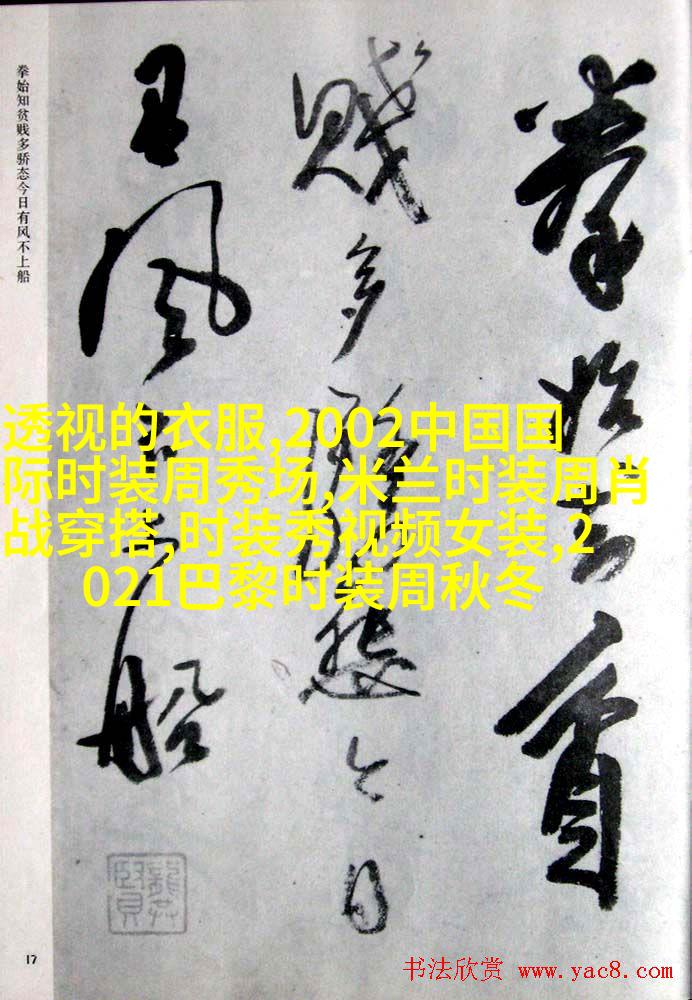 拳始知貧
賤多驕態今日
有風不上船
拳始知贫贱多骄态今日有风不上船
透视的衣服,2002中国国
际时装周秀场,米兰时装周肖
战穿搭,时装秀视频女装,2
021巴黎时装周秋冬
17
书法欣赏 www.yac8.com